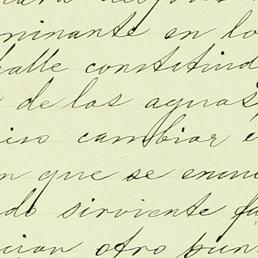 minante en lo
calle constituid
de las aguas,
iso cambiar e
n que se enun
do sirviente fu
cion otro pun